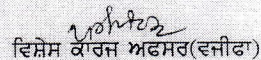 ਵਿਸ਼ੇਸ ਕਾਰਜ ਅਫਸਰ(ਵਜੀਫਾ)